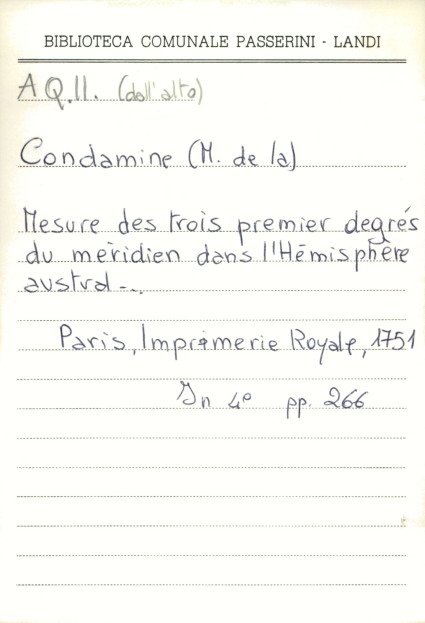 BIBLIOTECA COMUNALE PASSERINI - LANDI
A Q.II. (dall'alto)
Condamine (M. de la)
Mesure des trois premier degrés
du méridien dans l'Hémisphère
austral -..
Paris, Imprimerie Royale, 1751
In 4° pp. 266